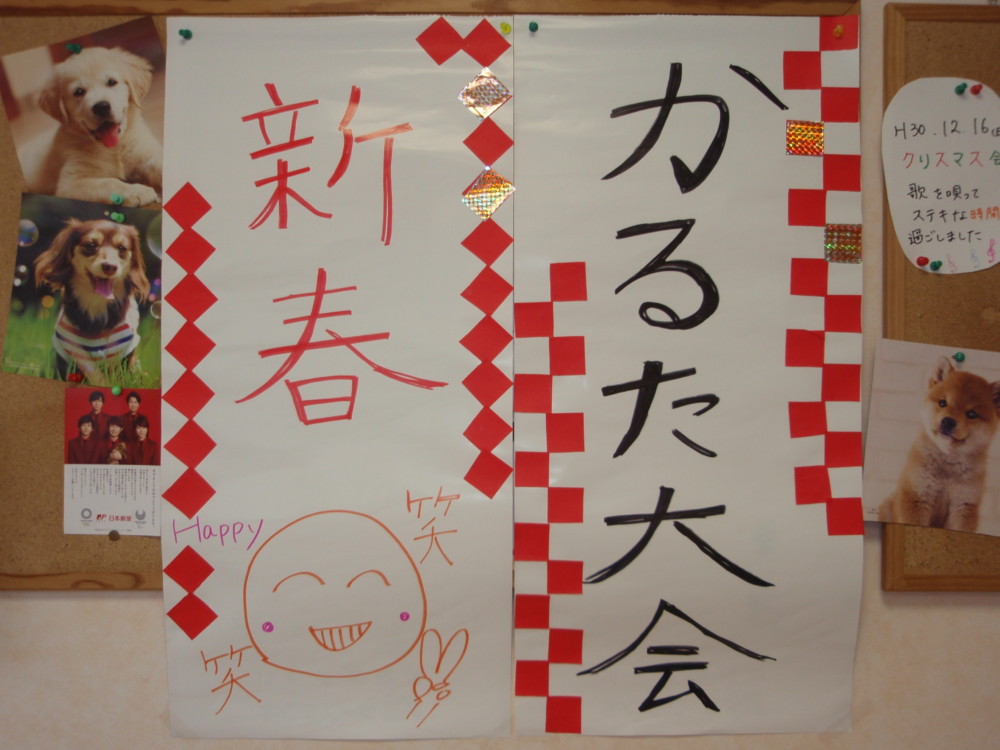 かるた大会
新春
Happy
笑
笑
H30.12.16
クリスマス会
歌を唄って
ステキな時間
過ごしました
日本郵便